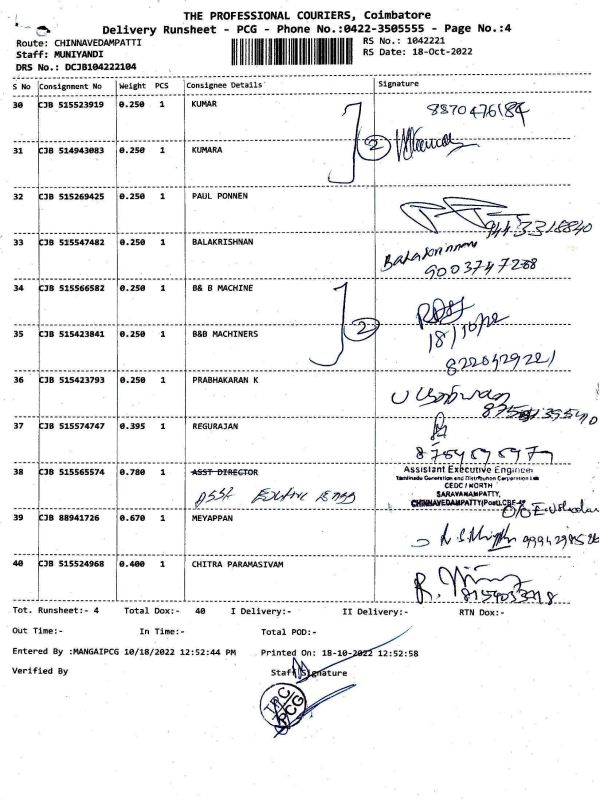 THE PROFESSIONAL COURIERS, Coimbatore
Delivery Runsheet - PCG - Phone No.:0422-3505555 - Page No.:4
Route: CHINNAVEDAMPATTI RS No.: 1042221
Staff: MUNIYANDI RS Date: 18-Oct-2022
DRS No.: DCJB104222104
S No Consignment No Weight PCS Consignee Details Signature
30 CJB 515523919 0.250 1 KUMAR 8870476184
31 CJB 514943083 0.250 1 KUMARA 2
32 CJB 515269425 0.250 1 PAUL PONNEN
9443318840
33 CJB 515547482 0.250 1 BALAKRISHNAN Balakrishnan
9003747268
34 CJB 515566582 0.250 1 B& B MACHINE
2 18/10/22
35 CJB 515423841 0.250 1 B&B MACHINERS
8220429221
36 CJB 515423793 0.250 1 PRABHAKARAN K
37 CJB 515574747 0.395 1 REGURAJAN
38 CJB 515565574 0.780 1 ASST DIRECTOR Assistant Executive Engineer
Tamilnadu Generation and Distribution Corporation Ltd
CEDC / NORTH
Asst Engg SARAVANAMPATTY,
CHINNAVEDAMPATTY(Post),CBE-49
39 CJB 88941726 0.670 1 MEYAPPAN
40 CJB 515524968 0.400 1 CHITRA PARAMASIVAM
Tot. Runsheet:- 4 Total Dox:- 40 I Delivery:- II Delivery:- RTN Dox:-
Out Time:- In Time:- Total POD:-
Entered By :MANGAIPCG 10/18/2022 12:52:44 PM Printed On: 18-10-2022 12:52:58
Verified By Staff Signature
TPC
PCG